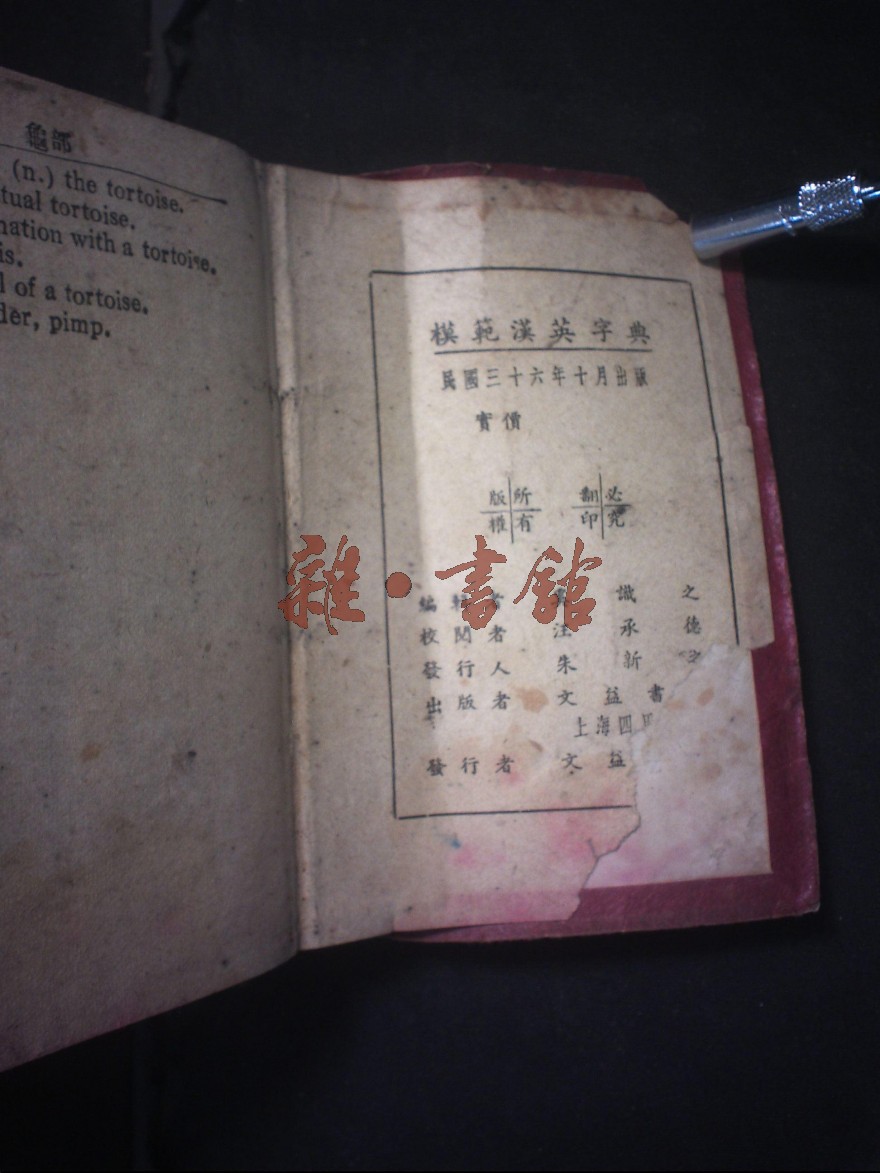 龜部
(n.) the tortoise.
tual tortoise.
nation with a tortoise.
is.
l of a tortoise.
der, pimp.
模範漢英字典
民國三十六年十月出版
實價
版權所有 翻印必究
編輯者 識之
校閱者 汪承德
發行人 朱新
出版者 文益書
上海四
發行者 文益
雜·書館